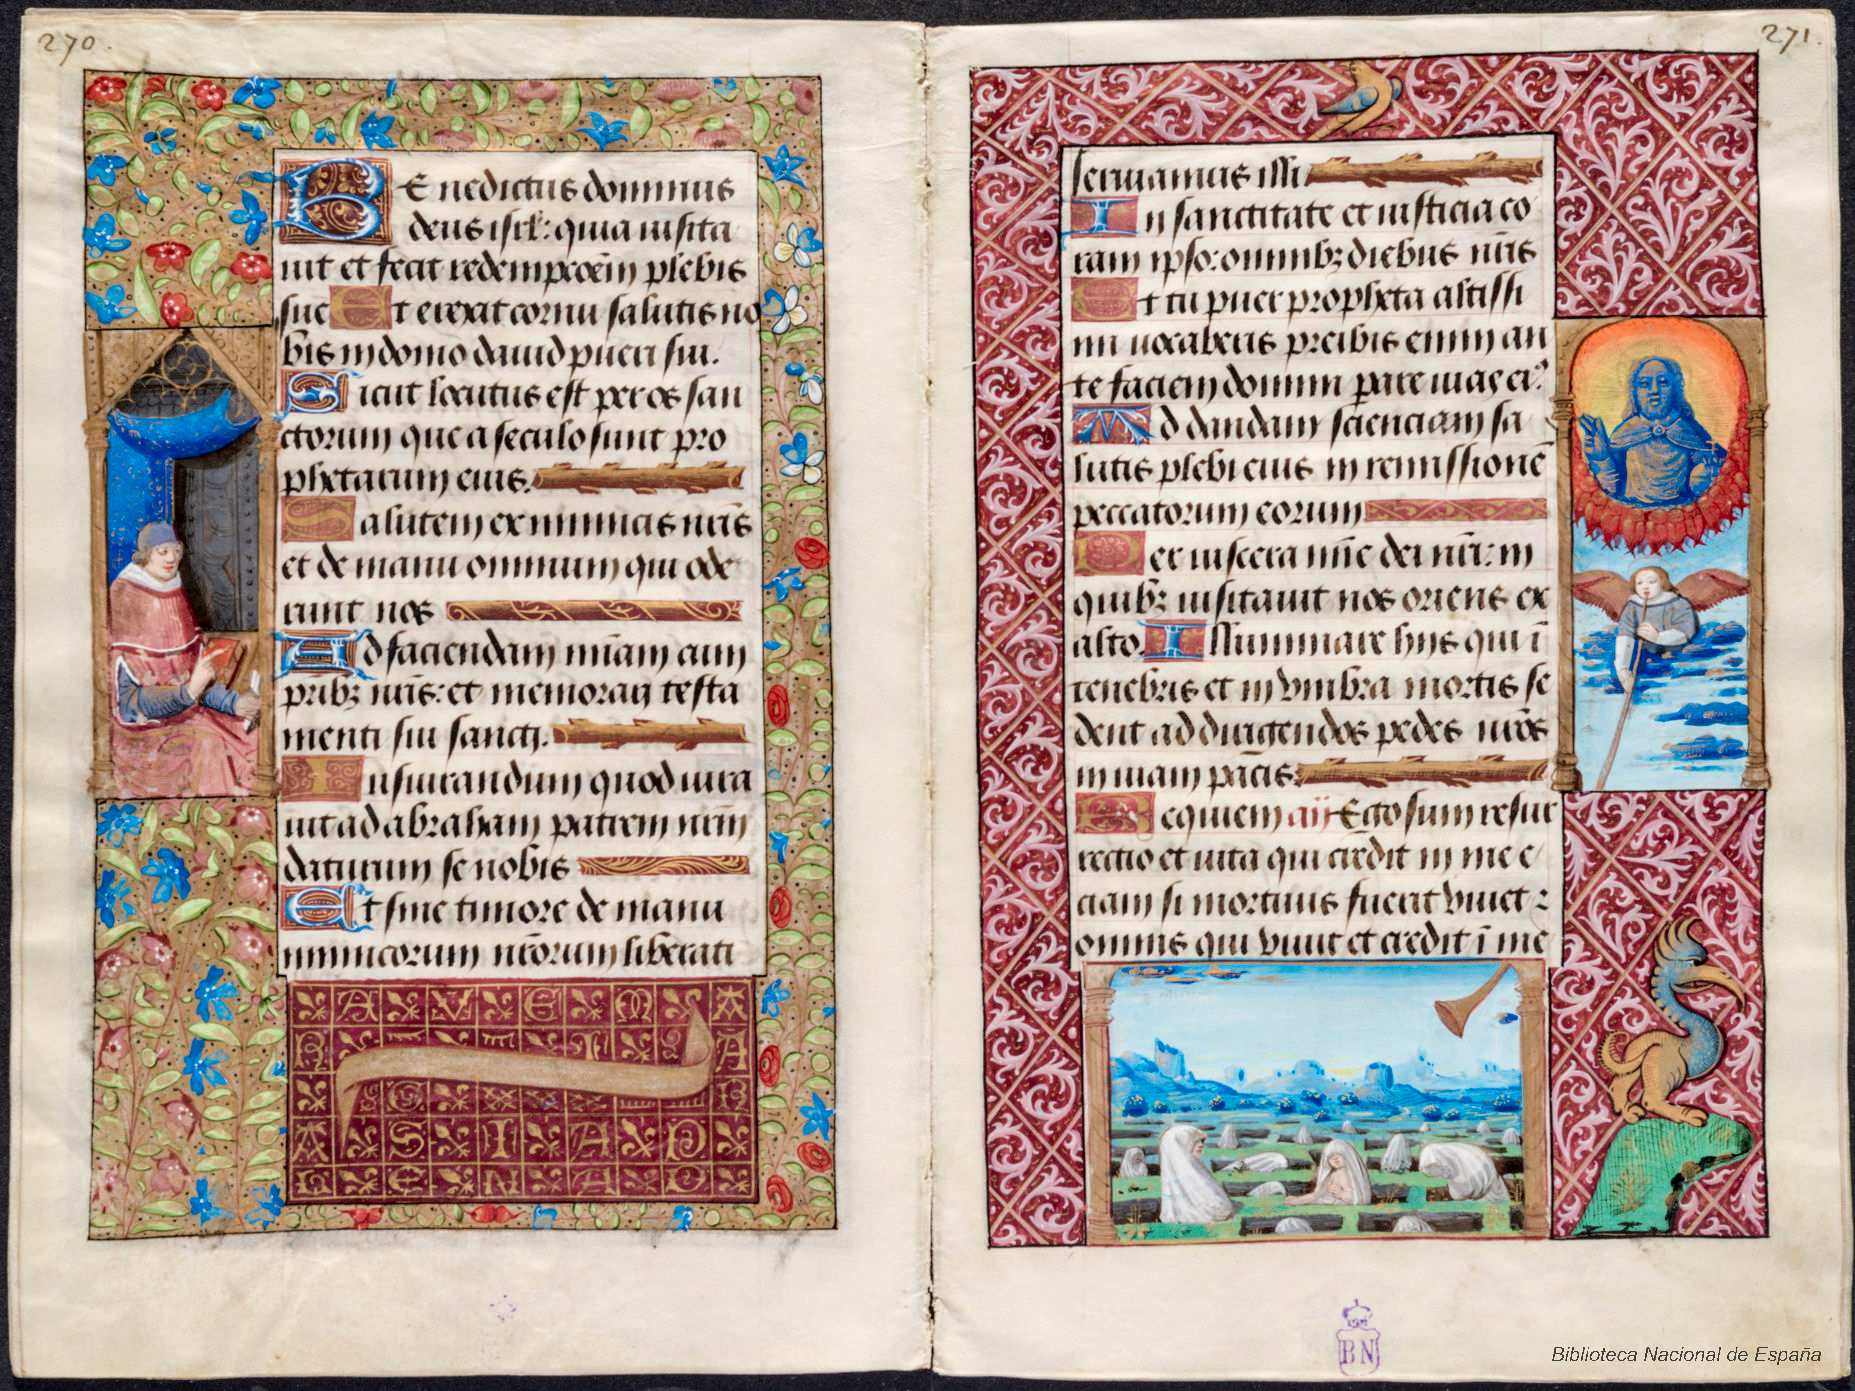 270.
BE nedictus dominus
deus isrl: quia uisita
uit et fecit redempcoẽm plebis
sue Et erexit cornu salutis no
bis in domo dauid pueri sui.
Sicut locutus est per os san
ctorum que a seculo sunt pro
phetarum eius.
Salutem ex inimicis nr̃is
et de manu omnium qui ode
runt nos
Ad faciendam mĩam cum
prib; nr̃is: et memorari testa
menti sui sancti.
Iusiurandum quod iura
uit ad abraham patrem nr̃m
daturum se nobis
Et sine timore de manu
inimicorum nr̃orum liberati
AVEM
A
SIAP
GENAP
271.
seruiamus illi
In sanctitate et iusticia co
ram ipso: omnib; diebus nr̃is
Et tu puer propheta altissi
mi uocaberis preibis enim an
te faciem domini parare uias ei9
Ad dandam scienciam sa
lutis plebi eius in remissionẽ
peccatorum eorum
Per uiscera mĩe dei nr̃i: in
quib; uisitauit nos oriens ex
alto. Illuminare hiis qui ĩ
tenebris et in vmbra mortis se
dent ad dirigendos pedes nr̃os
in uiam pacis
Requiem añ Ego sum resur
rectio et uita qui credit in me e
ciam si mortuus fuerit viuet :
omnis qui viuit et credit ĩ me
BN
Biblioteca Nacional de España